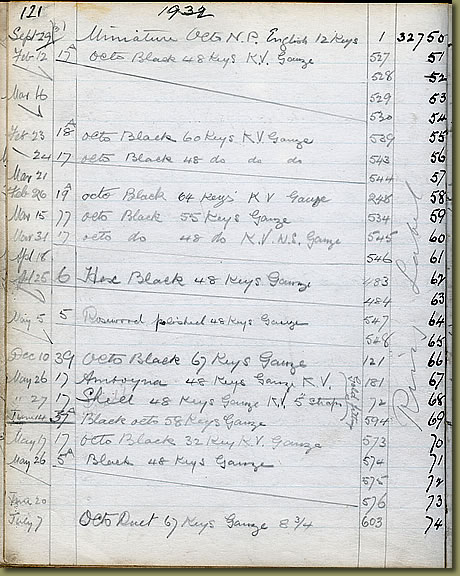 121 1932
Sept 29 Miniature Octo N.P. English 12 Keys 1 32750
Feb 12 17A Octo Black 48 Keys K.V. Gauze 527 51
528 52
Mar 16 529 53
530 54
Feb 23 18A octo Black 60 Keys K.V Gauze 539 55
" 24 17 octo Black 48 do do do 543 56
Mar 21 544 57
Feb 26 19A octo Black 64 Keys K V Gauze 248 58
Mar 15 17 octo Black 55 Keys Gauze 534 59
Mar 31 17 octo do 48 do K.V. N.S. Gauze 545 60
Apl 18 546 61
Apl 25 6 Hex Black 48 Keys Gauze 483 62
484 63
May 5 5 Rosewood polished 48 Keys Gauze 547 64
548 65
Dec 10 39 Octo Black 67 Keys Gauze 121 66
May 26 17 Amboyna 48 Keys Gauze K.V. 181 67
" 27 17 Shell 48 Keys Gauze K.V. 5 Straps 72 68
37A Black octo 58 Keys Gauze 594 69
May 17 17 octo Black 32 Key K.V. Gauze 573 70
May 26 5A Black 48 Keys Gauze 574 71
575 72
20 576 73
July 7 Octo Duet 67 Keys Gauze 8 3/4 603 74
Label